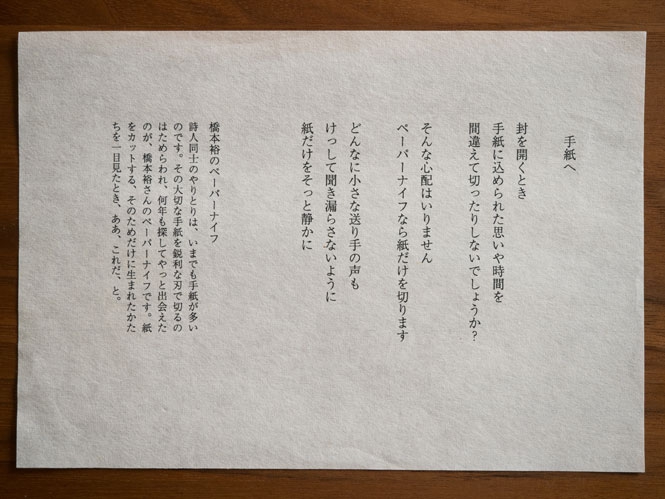 手紙へ
封を開くとき
手紙に込められた思いや時間を
間違えて切ったりしないでしょうか?
そんな心配はいりません
ペーパーナイフなら紙だけを切ります
どんなに小さな送り手の声も
けっして聞き漏らさないように
紙だけをそっと静かに
橋本裕のペーパーナイフ
詩人同士のやりとりは、いまでも手紙が多い
のです。その大切な手紙を鋭利な刃で切るの
はためらわれ、何年も探してやっと出会えた
のが、橋本裕さんのペーパーナイフです。紙
をカットする、そのためだけに生まれたかた
ちを一目見たとき、ああ、これだ、と。